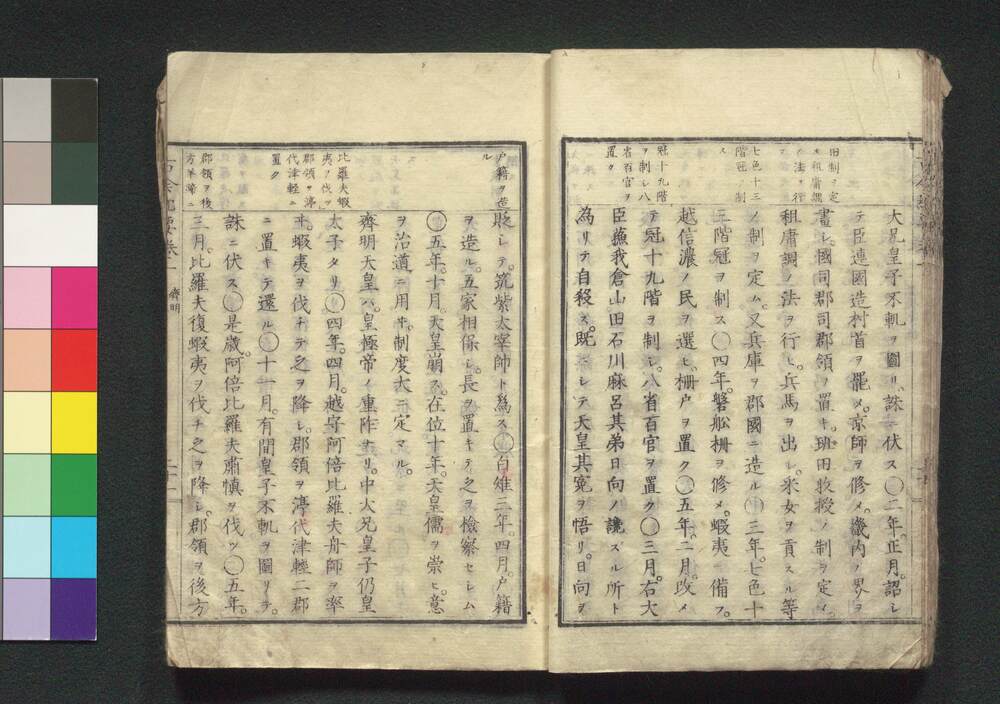 旧制ヲ定
メ租庸調
ノ法ヲ行
七色十三
階冠ヲ制
ス
冠十九階
ヲ制シ八
省百官ヲ
置ク
大兄皇子不軌ヲ圖リ。誅ニ伏ス〇二年。正月。詔シ
テ臣連國造村首ヲ罷メ。京師ヲ修メ。畿内ノ界ヲ
畫シ。國司郡司郡領ヲ置キ。班田收授ノ制ヲ定メ。
租庸調ノ法ヲ行ヒ。兵馬ヲ出シ。采女ヲ貢スル等
ノ制ヲ定ム。又兵庫ヲ郡國ニ造ル〇三年。七色十
三階冠ヲ制ス〇四年。磐舩柵ヲ修メ。蝦夷ニ備フ。
越信濃ノ民ヲ選ヒ。柵戸ヲ置ク〇五年。二月。改メ
テ冠十九階ヲ制シ。八省百官ヲ置ク〇三月。右大
臣蘓我倉山田石川麻呂其弟日向ノ讒スル所ト
為リテ自殺ス。既ニシテ天皇其冤ヲ悟リ。日向ヲ
戸籍ヲ造
ル
比羅夫蝦
夷ヲ伐ツ
郡領ヲ渟
代津輕ニ
置ク
郡領ヲ後
方羊蹄ニ
貶シテ。筑紫太宰帥ト為ス〇白雉三年。四月。戸籍
ヲ造ル。五家相保シ。長ヲ置キテ之ヲ檢察セシム
〇五年。十月。天皇崩ス。在位十年。天皇儒ヲ崇ヒ。意
ヲ治道ニ用ヰ。制度大ニ定マル。
齊明天皇ハ。皇極帝ノ重祚ナリ。中大兄皇子仍皇
太子タリ〇四年。四月。越守阿倍比羅夫舟師ヲ率
ヰ。蝦夷ヲ伐チテ之ヲ降シ。郡領ヲ渟代津輕二郡
ニ置キテ還ル〇十一月。有間皇子不軌ヲ圖リテ。
誅ニ伏ス〇是歳。阿倍比羅夫肅慎ヲ伐ツ〇五年。
三月。比羅夫復蝦夷ヲ伐チ之ヲ降シ。郡領ヲ後方
齊明